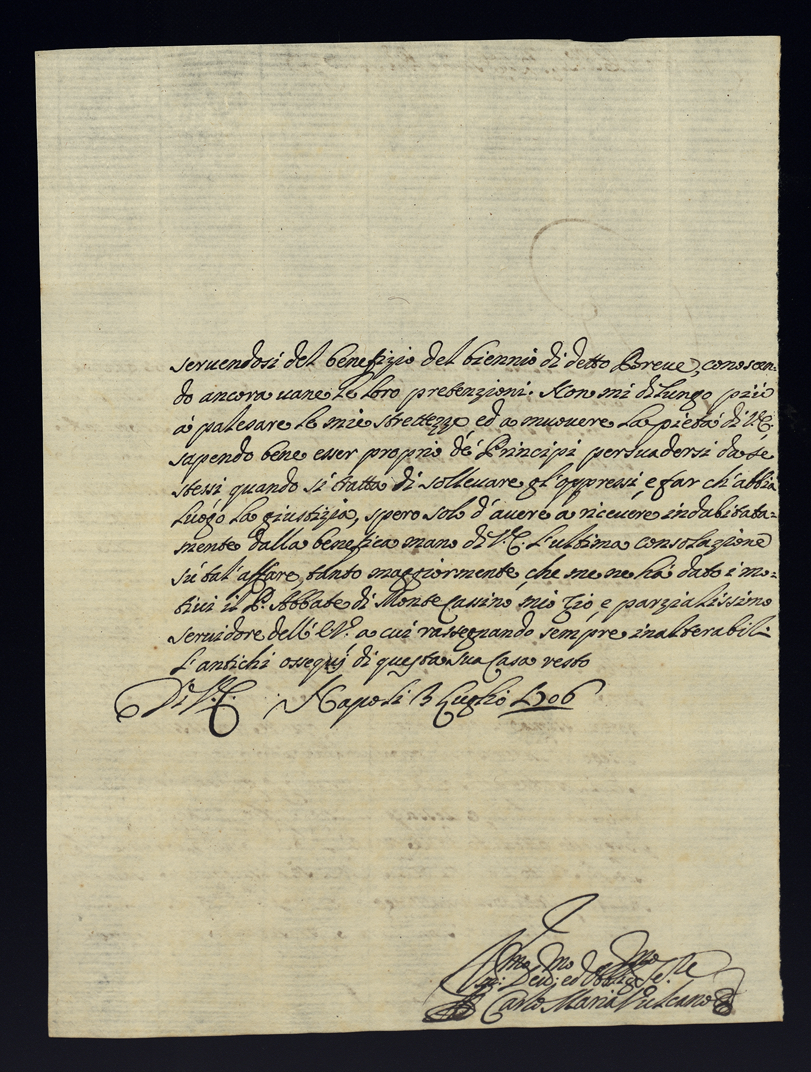 seruendosi del benefizio del biennio di detto Breue, conoscen=
do ancora uane le loro pretenzioni. Non mi dilungo più
à palesare le mie strettezze ed a muouere la pietà di V.E.
sapendo bene esser proprio de' Principi persuadersi da se
stessi quando si tratta di solleuare gl'oppressi, e far ch'abbia
luogo la giustizia, spero sol d'auere a riceuere indubitata=
mente dalla benefica mano di V.E. l'ultima consolazione
sù tal'affare, tanto maggiormente, che me ne hà dato i mo=
tiui il P. Abbate di Monte Cassino mio Zio, e parzialissimo
seruidore dell'E.V. a cui rassegnando sempre inalterabili
l'antichi ossequij di questa sua Casa resto
Di V.E. Napoli 3 Luglio 1706
Deu. ed Obblig. Se.re
Carlo Maria Vulcano